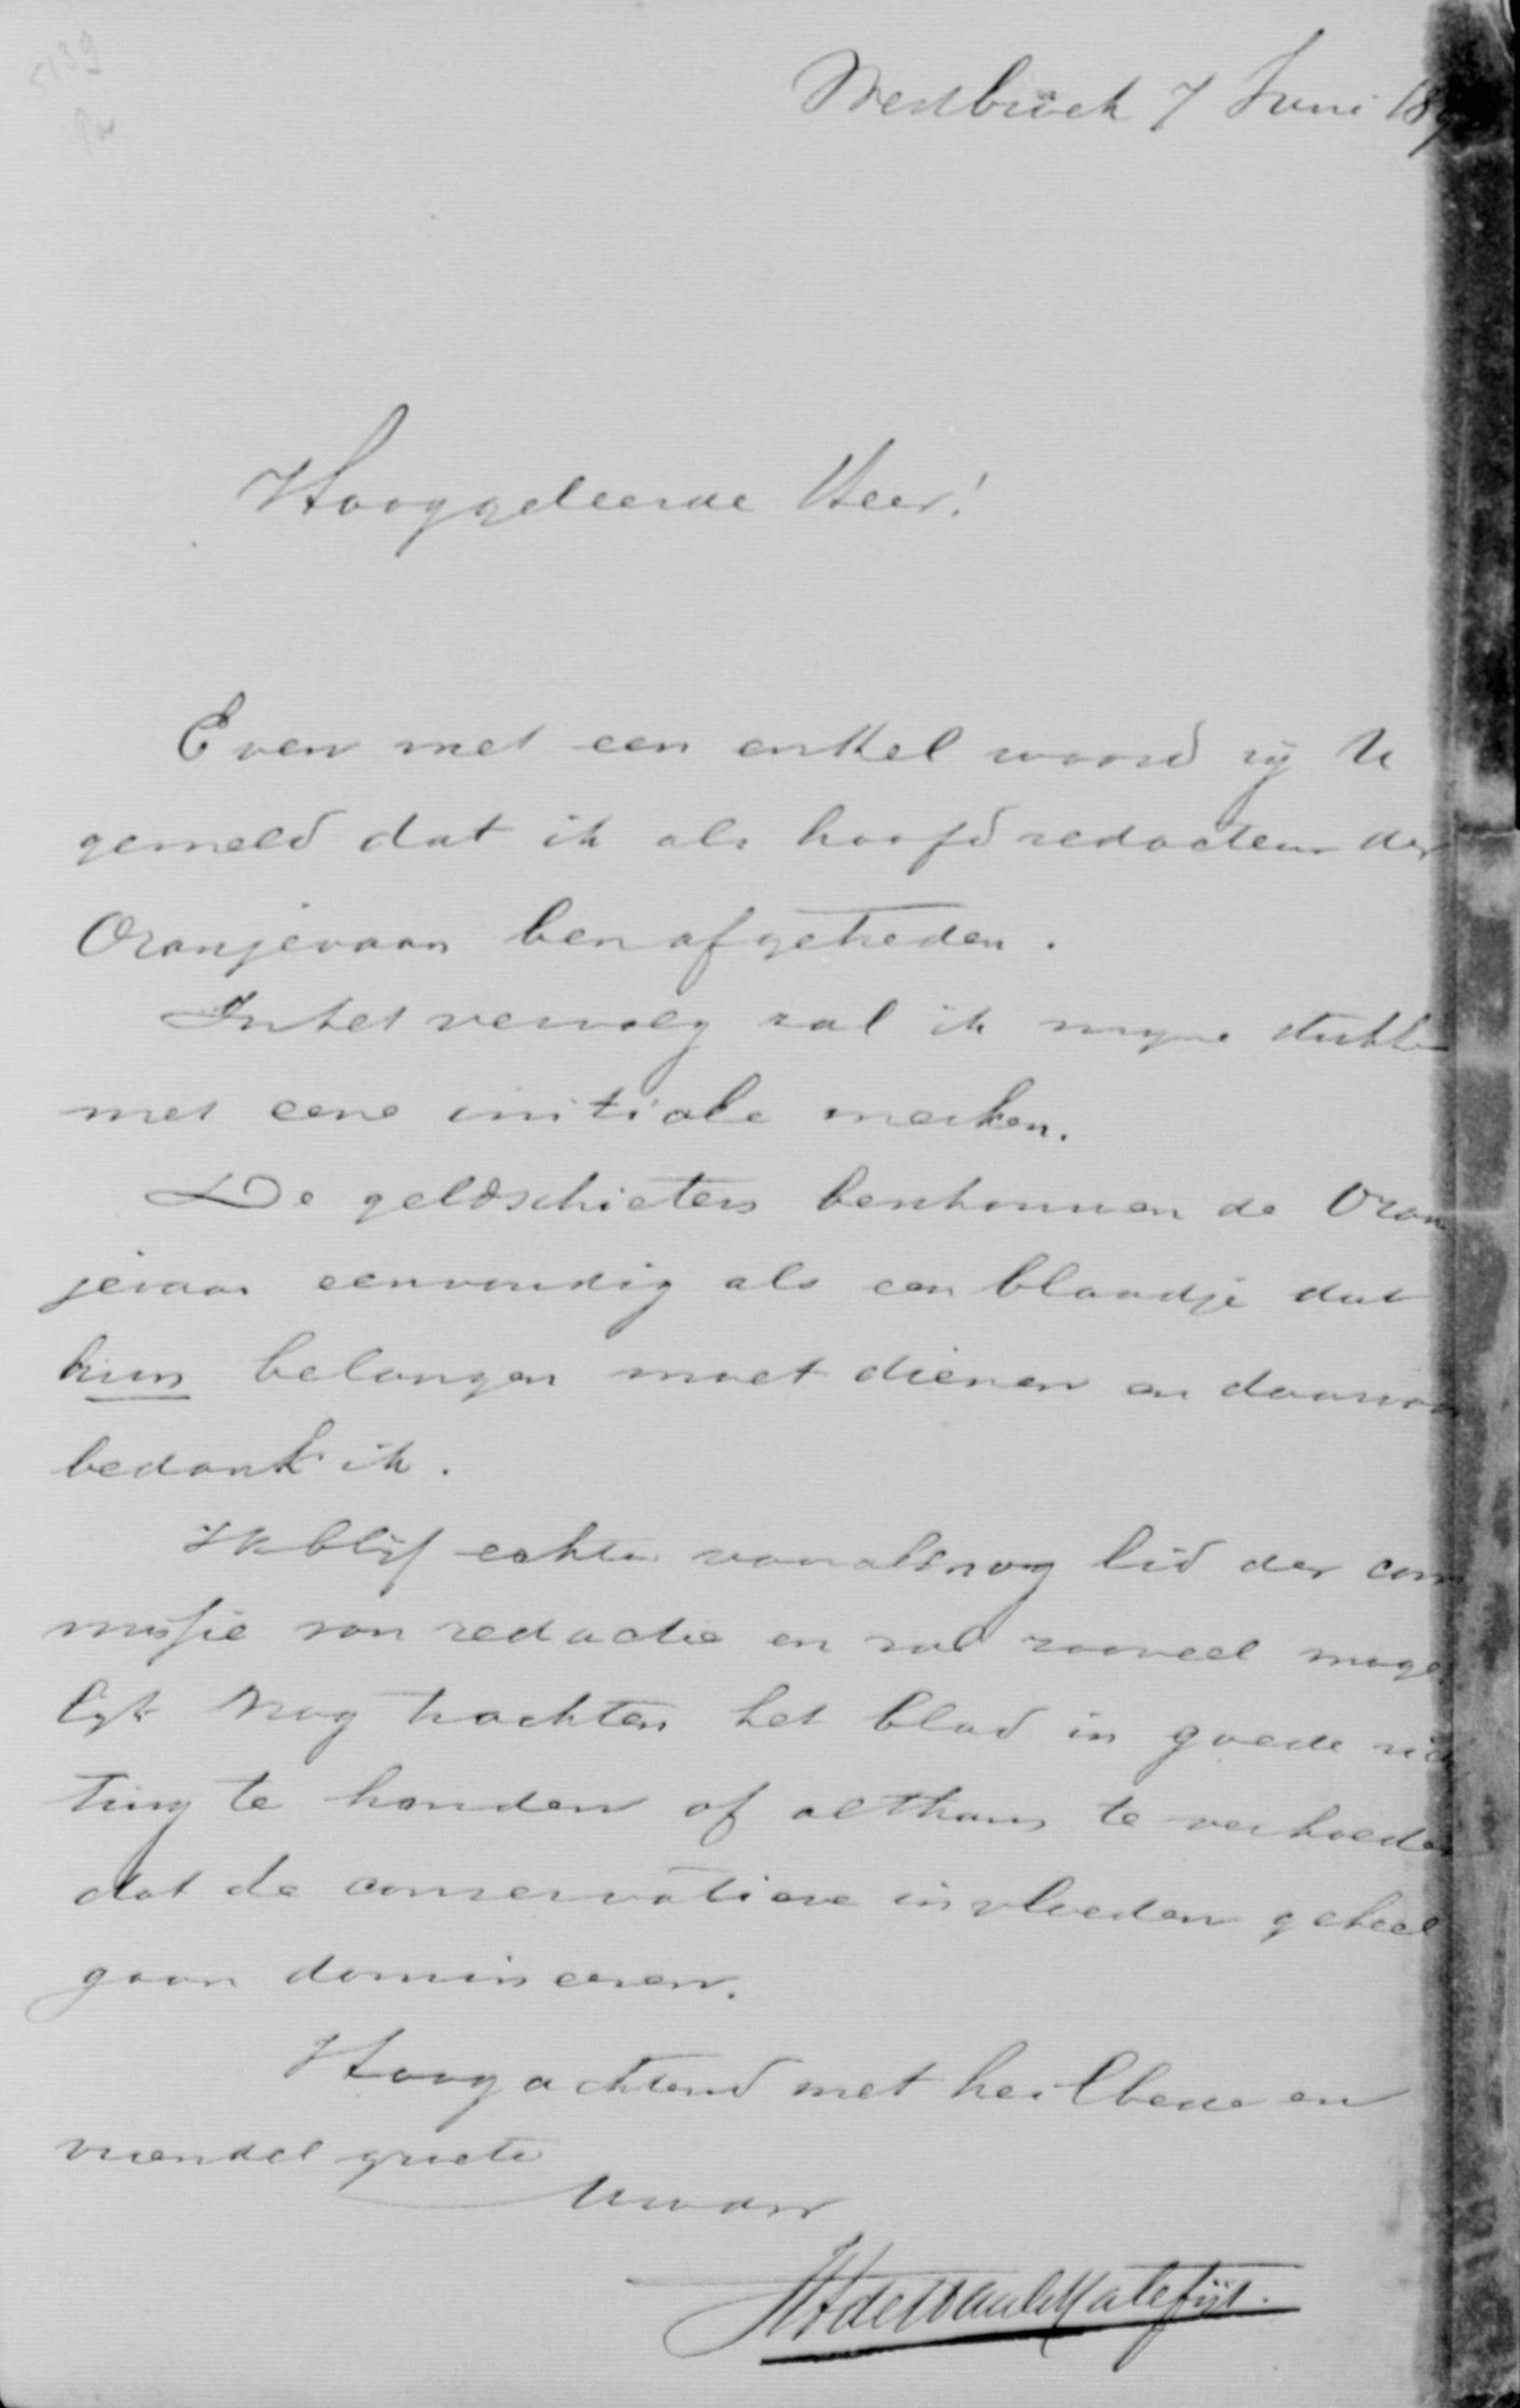 5139
Westbroek 7 Juni 189
Hooggeleerde Heer!
Even met een enkel woord zij U
gemeld dat ik als hoofdredacteur der
Oranjevaan ben afgetreden.
In het vervolg zal ik myne stukken
met eene initiale merken.
De geldschieters beschouwen de Oran
jevaan eenvoudig als een blaadje dat
hun belangen moet dienen en daarvoor
bedank ik.
Ik blijf echter vooralsnog lid der com
missie van redactie en zal zooveel moge
lyk nog trachten het blad in goede rich
ting te houden of althans te verhoeden
dat de conservatieve invloeden geheel
gaan domineeren.
Hoogachtend met heilbede en
vriendel groete
Uw dw